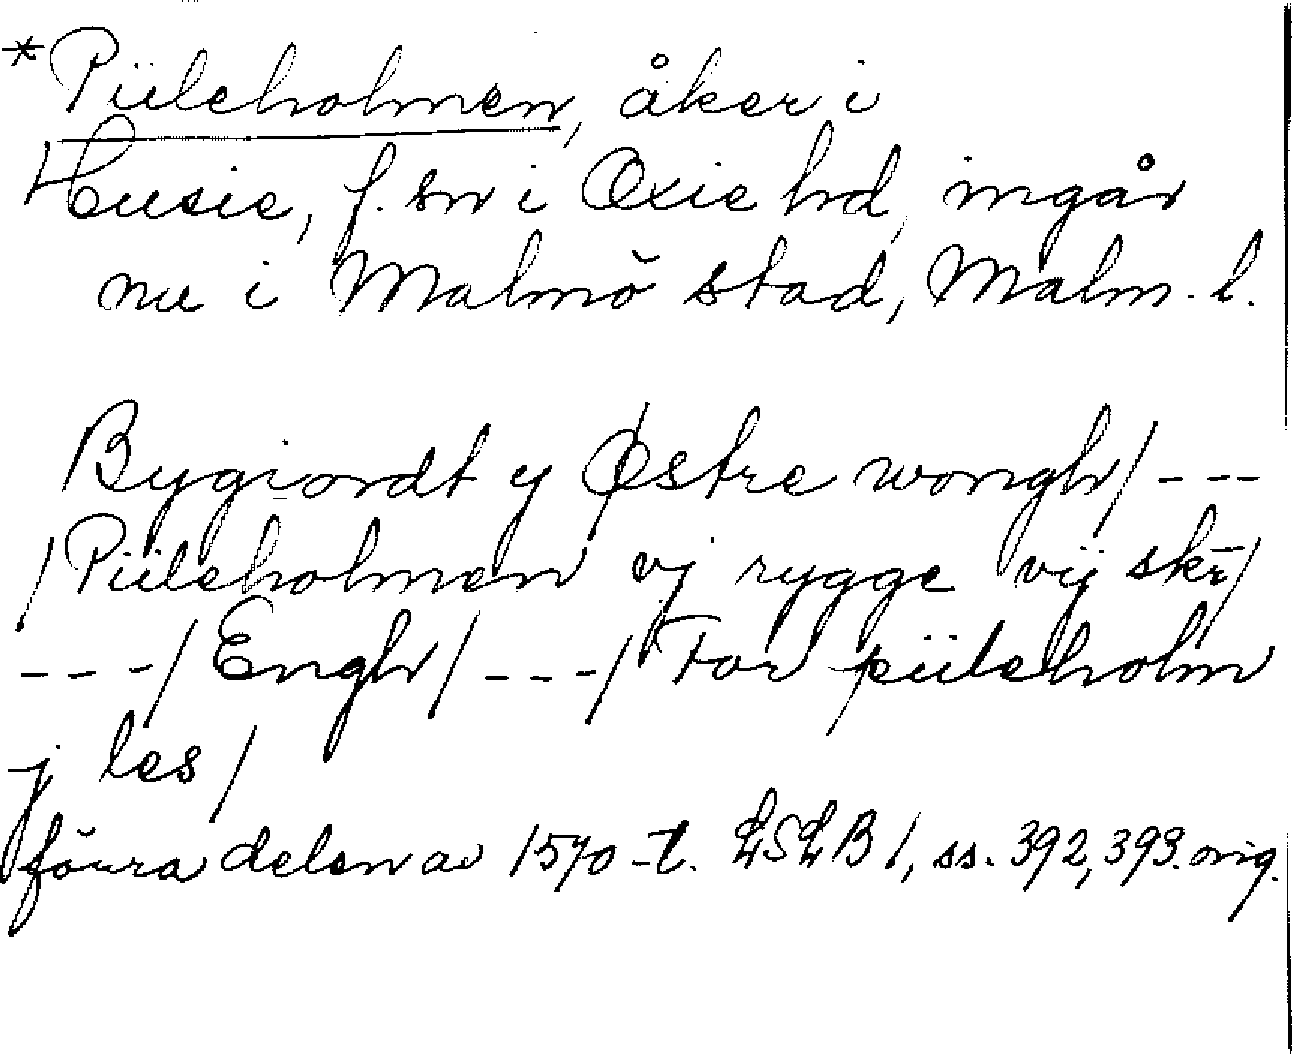 *Piileholmen, åker i
Husie, f. sn i Oxie hd, ingår
nu i Malmö stad, Malm. l.
Bygiordt y Østre wongh/ ---
/Piileholmen vj rygge vij skr̄/
---/Engh/ ---/ For piileholm
j les/
förra delen av 1570-t. LSLB 1, ss. 392, 393. orig.